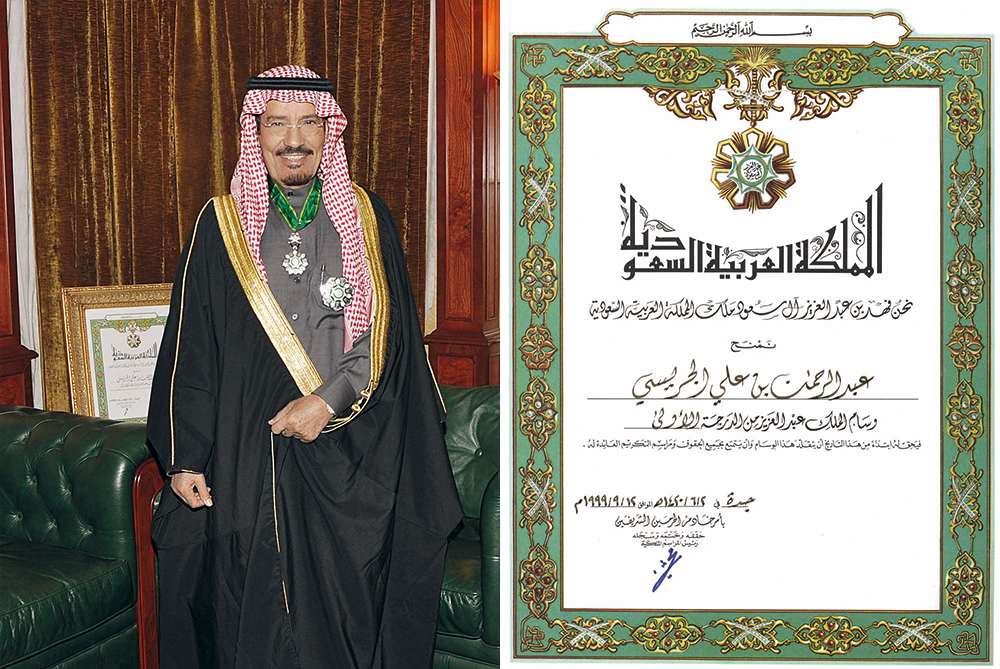 بسم الله الرحمن الرحيم
المملكة العربية السعودية
نحن فهد بن عبد العزيز آل سعود ملك المملكة العربية السعودية
نمنح
عبدالرحمن بن علي الجريسي
وسام الملك عبد العزيز من الدرجة الأولى
فيحق له ابتداء من هذا التاريخ أن يتقلد هذا الوسام وأن يتمتع بجميع الحقوق ومراسم التكريم العائدة له.
جدة في ١٤٢٠/٦/٢هـ الموافق ١٩٩٩/٩/١٢م
بأمر خادم الحرمين الشريفين
حققه وختمه وسجله
رئيس المراسم الملكية